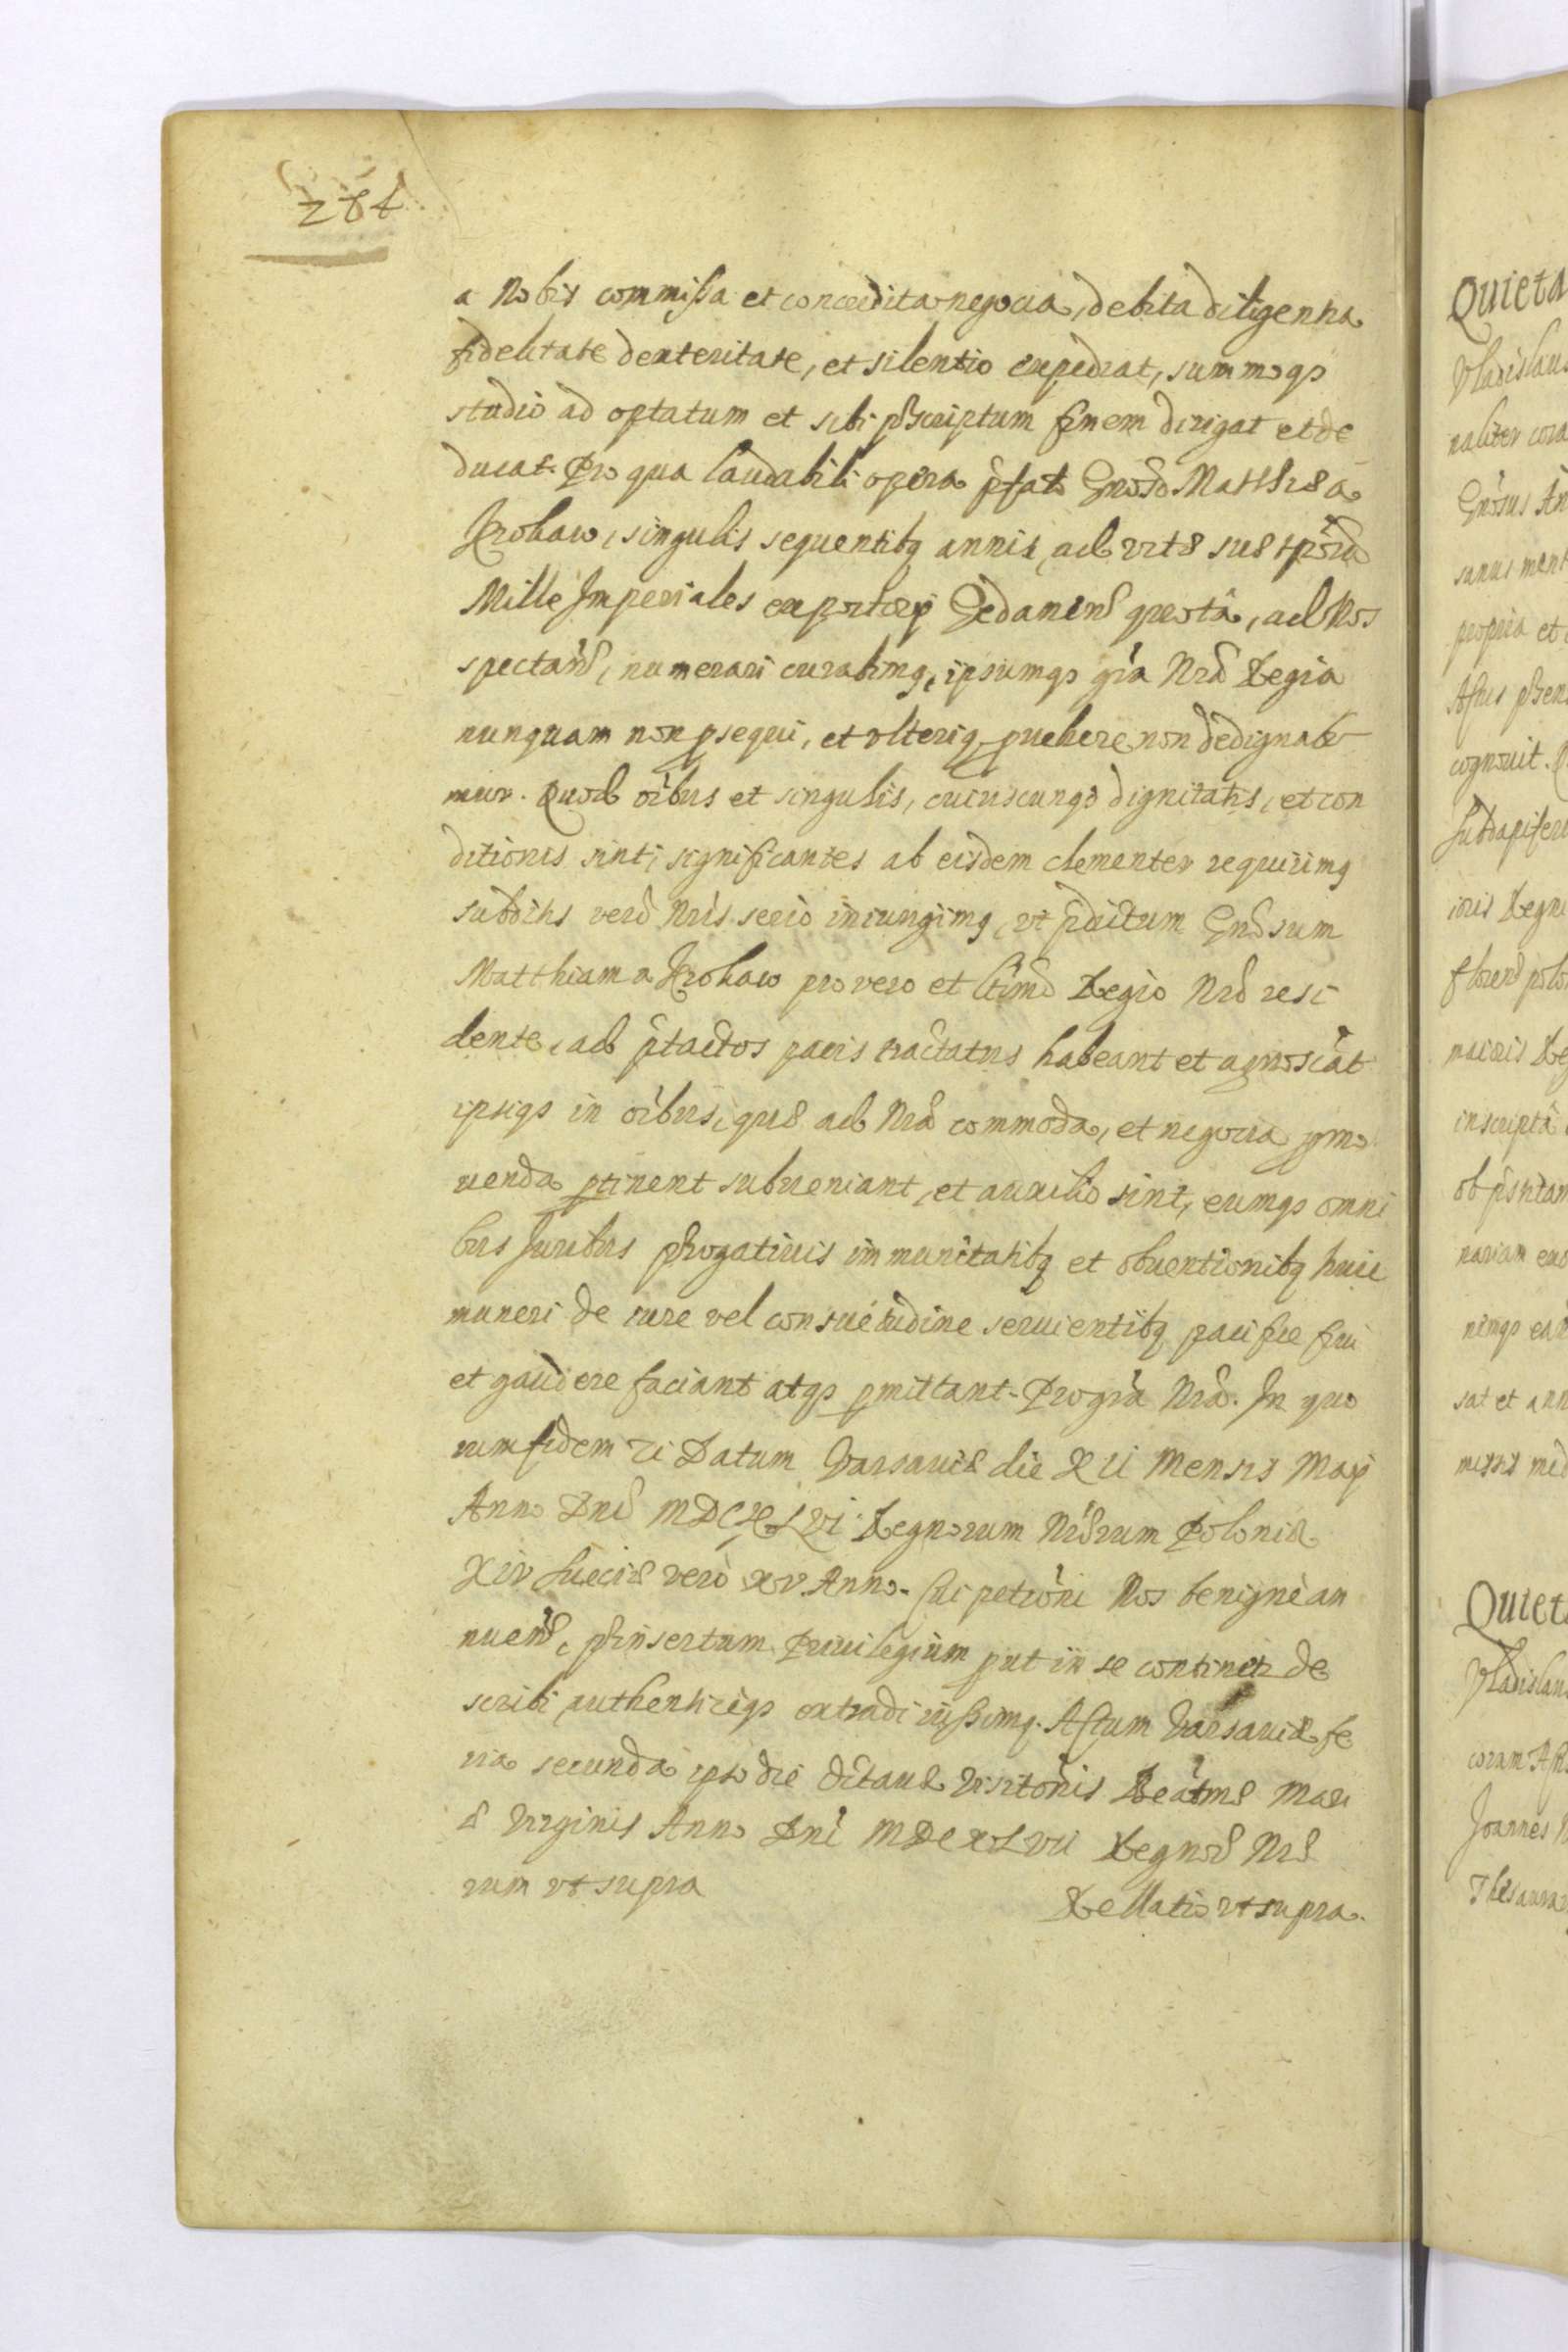 284
a Nobis commissa et concredita negocia, debita diligentia
fidelitate dexteritate, et silentio expediat, summoqȝ
studio ad optatum et sibi pscriptum finem dirigat et de
ducat. Pro qua laudabili opera pfato Gnoso Matthiæ a
Krokaw, singulis sequentibq annis, ad vitæ suæ tpora
Mille Imperiales ex portorij Gedanens quota, ad Nos
spectans, numerari curabimq, ipsumqȝ gra Nra Regia
nunquam non psequi, et vlteriq puehere non dedignabi
mur. Quod oibus et singulis, cuiuscunqȝ dignitatis, et con
ditionis sint, significantes ab eisdem clementer requirimq
subditis vero Nris serio iniungimq, vt pdictum Gnosum
Matthiam a Krokaw pro vero et ltimo Regio Nro resi
dente, ad ptactos pacis tractatus habeant et agnoscat
ipsiqȝ in oibus, quæ ad Nra commoda, et negocia pmo
uenda ptinent subueniant, et auxilio sint, eumqȝ omni
bus Iuribus progatiuis immunitatibq et obuentionibq huic
muneri de iure vel consuetudine seruientibq pacifice frui
et gaudere faciant atqȝ pmittant. Pro gra Nra. In quo
rum fidem Datum Varsauiæ die XII Mensis Maij
Anno Dni MDCXLVI Regnorum Nrorum Poloniæ
XIV Sueciæ vero XV Anno. Cui petitioni Nos benigne an
nuens, pinsertum Priuilegium put in se continetr de
scribi authenticeqȝ extradi iussimq. Actum Varsauiæ fe
ria secunda ipso die Octauæ Visitonis Beatmæ Mari
æ Virginis Anno Dni MDCXLVII Regnor Nro
rum vt supra
Rellatio vt supra.
Quieta
Vladislaus
naliter cora
Gnosus An
sanus ment
propria et
Actis psen
cognouit.
Subdapifer
ioris Regni
floren polo
maioris Re
inscripta
nariam
nimqȝ
sat et ann
missis med
Quiet
Vladislau
coram Act
Joannes
Thesaurar